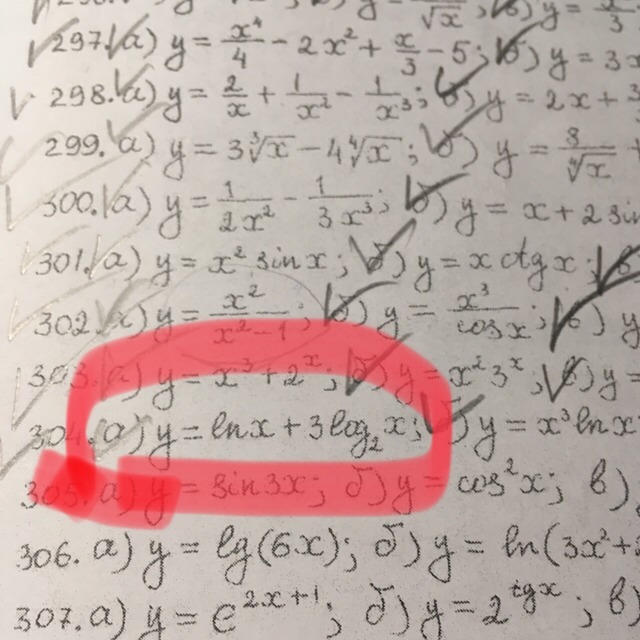 √x ; б) y =
297. а) y = x⁴/4 - 2x² + x/3 - 5 ; б) y = 3x
298. а) y = 2/x + 1/x² - 1/x³ ; б) y = 2x + 3
299. а) y = 3∛x - 4∜x ; б) y = 8/∜x +
300. а) y = 1/2x² - 1/3x³ ; б) y = x + 2 sin
301. а) y = x² sin x ; б) y = x ctg x ; в)
302. а) y = x²/x²-1 ; б) y = x³/cos x ; в) y
303. а) y = x³ + 2ˣ ; б) y = x² 3ˣ ; в) y =
304. а) y = ln x + 3 log₂ x ; б) y = x³ ln x
305. а) y = sin 3x ; б) y = cos² x ; в)
306. а) y = lg (6x) ; б) y = ln (3x² +
307. а) y = e²ˣ⁺¹ ; б) y = 2^tg x ; в)